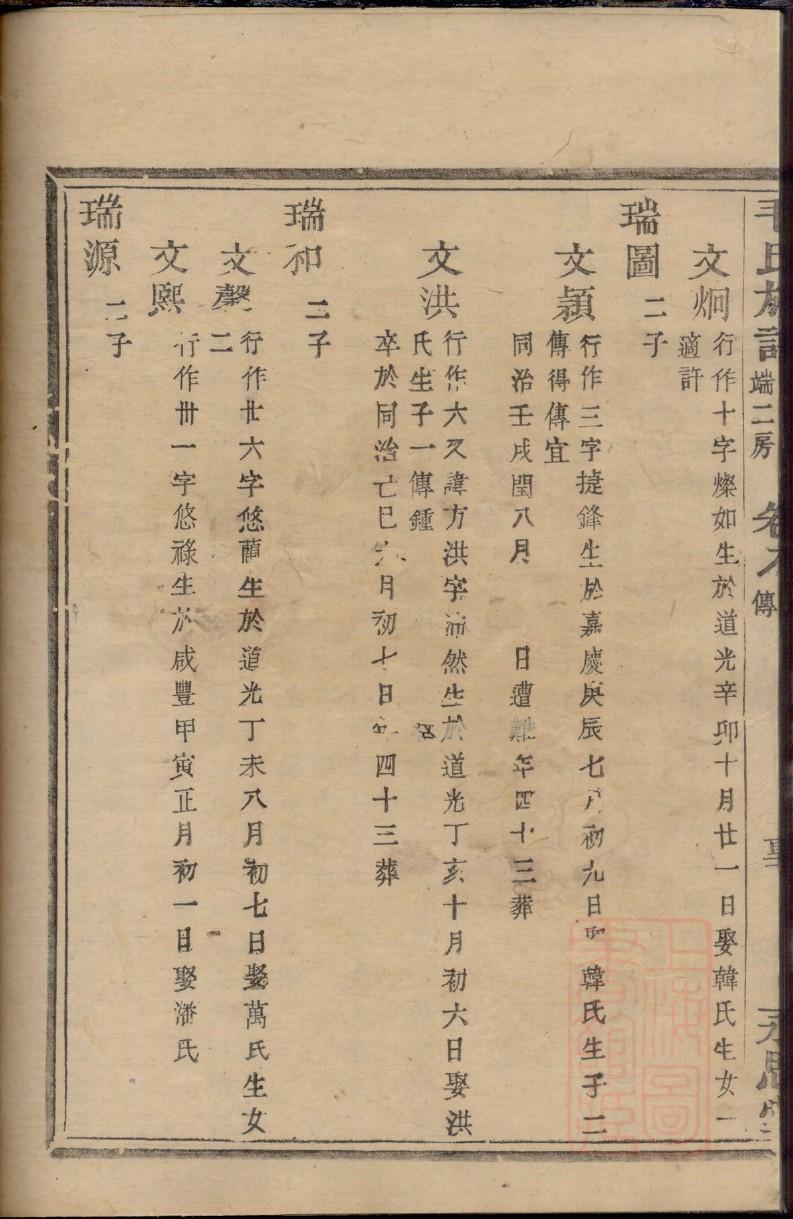 毛氏族譜 端二房 卷 傳 永思堂
文炯 行作十字燦如生於道光辛卯十月廿一日娶韓氏生女一
適許
瑞圖 二子
文潁 行作三字捷鋒生於嘉慶庚辰七月初九日 韓氏生子二
傳得傳宜
同治壬戌閏八月 日遭難年四十三葬
文洪 行作六又諱方洪字沛然生於道光丁亥十月初六日娶洪
氏生子一傳鍾
卒於同治亡巳 月初七日年四十三葬
瑞和 二子
文馨 行作廿六字悠蘭生於道光丁未八月初七日娶萬氏生女
二
文熙 行作卅一字悠祿生於咸豐甲寅正月初一日娶潘氏
瑞源 二子
上海圖書館藏